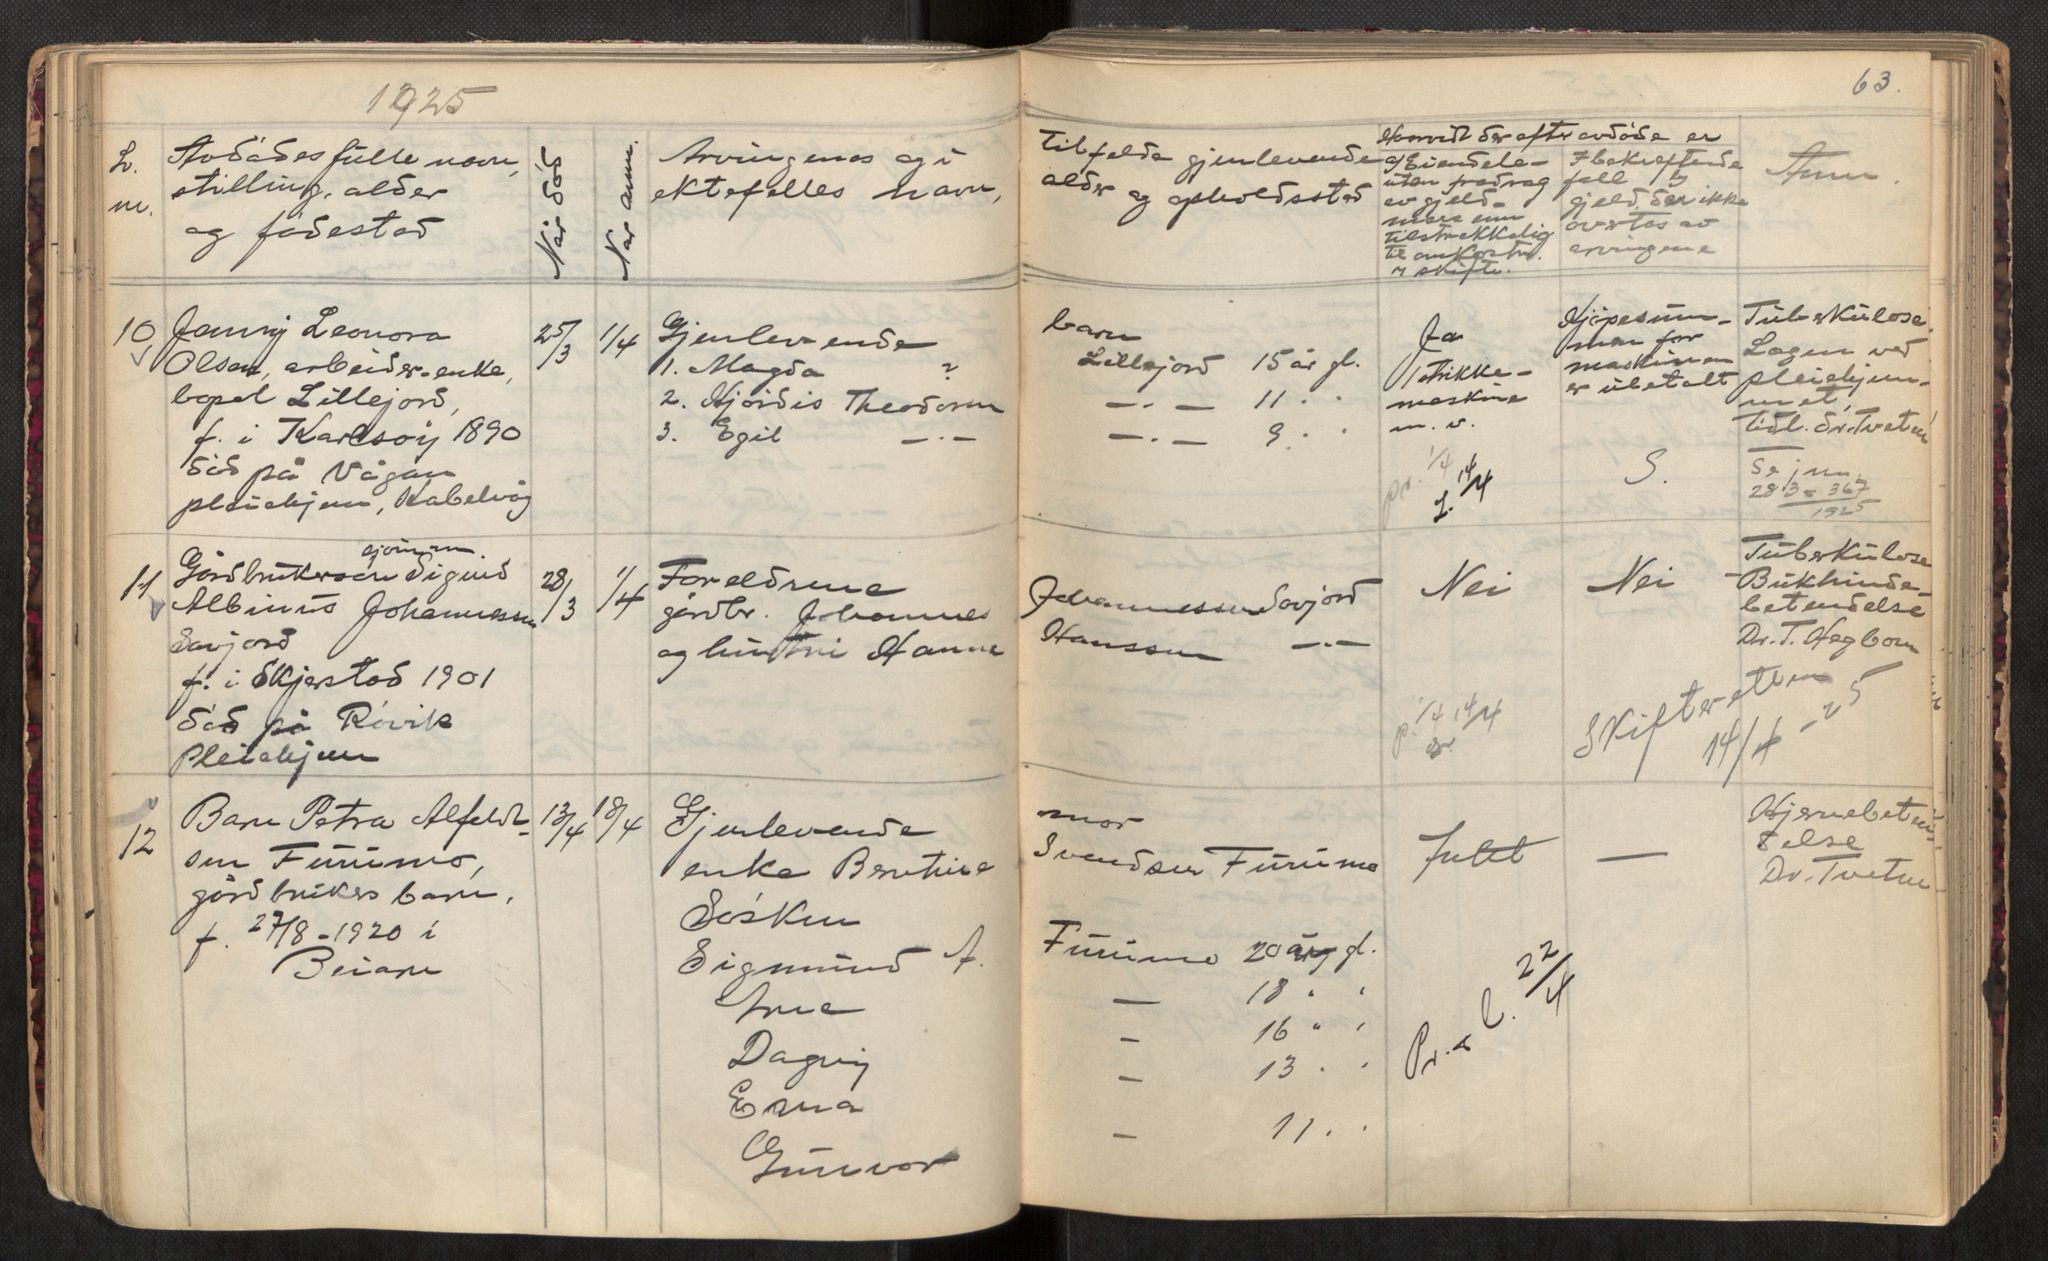 1925
63.
L. nr.
Avdødes fulle navn,
stilling, alder
og fødested
Når død
Når anm.
Arvingenes og i
ektefelles navn,
tilfelde gjenlevende
alder og opholdssted
Hvorvidt der efter avdøde er
eiendele
uten fradrag
av gjeld
mere enn
tilstrekkelig
til omkostn.
v skifte.
I bekreftende
fall
gjeld, der ikke
overtas av
arvingene
Anm.
10
Jenny Leonora
Olsen, arbeider-enke,
bopel Lillejord,
f. i Karlsøy 1890
død på Vågan
pleiehjem, Kabelvåg
25/3
1/4
Gjenlevende
1. Magda ?
2. Hjørdis Theodorsen
3. Egil —.—
barn
Lillejord 15 år gl.
—.— 11 . .
—.— 9 . .
Ja
1 strikke-
maskine
m. v.
pr. 1/4 14/4
Kjøpesum-
men for
maskinen
er ubetalt
S.
Tuberkulose.
Lagen ved
pleiehjem-
met,
tidl. dr. Tveten
Se jnr.
283 - 367
1925
11
Gårdbrukersøn Sigurd
Albinus Johannessen
Søvjord
f. i Skjerstad 1901
død på Røvik
Pleiehjem
28/3
1/4
Foreldrene
gårdbr. Johannes
og hustru Hanna
Johannessen Søvjord
Hanssen —.—
Nei
Nei
Tuberkuløse
Bukhinde-
betendelse
Dr. T. Hegbom
1/4 14/4
Skifteretten
14/4 - 25
12
Barn Petra Alfeldt-
sen Furumo,
gårdbrukers barn,
f. 27/8 - 1920 i
Beiarn
13/4
18/4
Gjenlevende
enke Berntine
Søsken
Sigmund A.
Arne
Dagny
Erna
Gunvor
mor
Svendsen Furumo
Furumo 20 år gl.
— 18 " '
— 16 " '
— 13 . '
— 11 . .
Intet
—
Pr. 22/4
Hjernebeten-
delse
Dr. Tveten